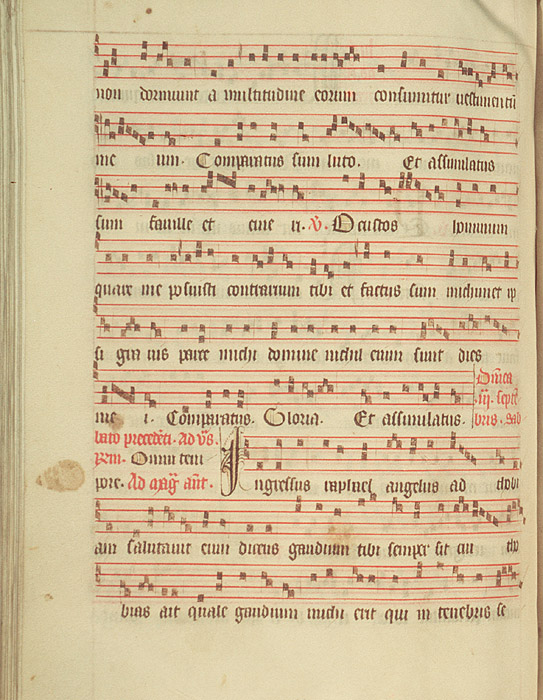 non dormiunt a multitudine eorum consumitur vestimentū
me um. Comparatus sum luto. Et assimilatus
sum faville et cine ri. V̄. O custos hominum
quare me posuisti contrarium tibi et factus sum michimet ip
si gra vis parce michi domine nichil enim sunt dies
me i. Comparatus. Gloria. Et assimilatus.
Dn̄ica
iij. septē
bris. sab
bato precedēti. Ad v̄s.
Omni tem
pore. Ad mag̃. añt. Ingressus raphael angelus ad thobi
am salutavit eum dicens gaudium tibi semper sit cui tho
bias ait quale gaudium michi erit qui in tenebris se